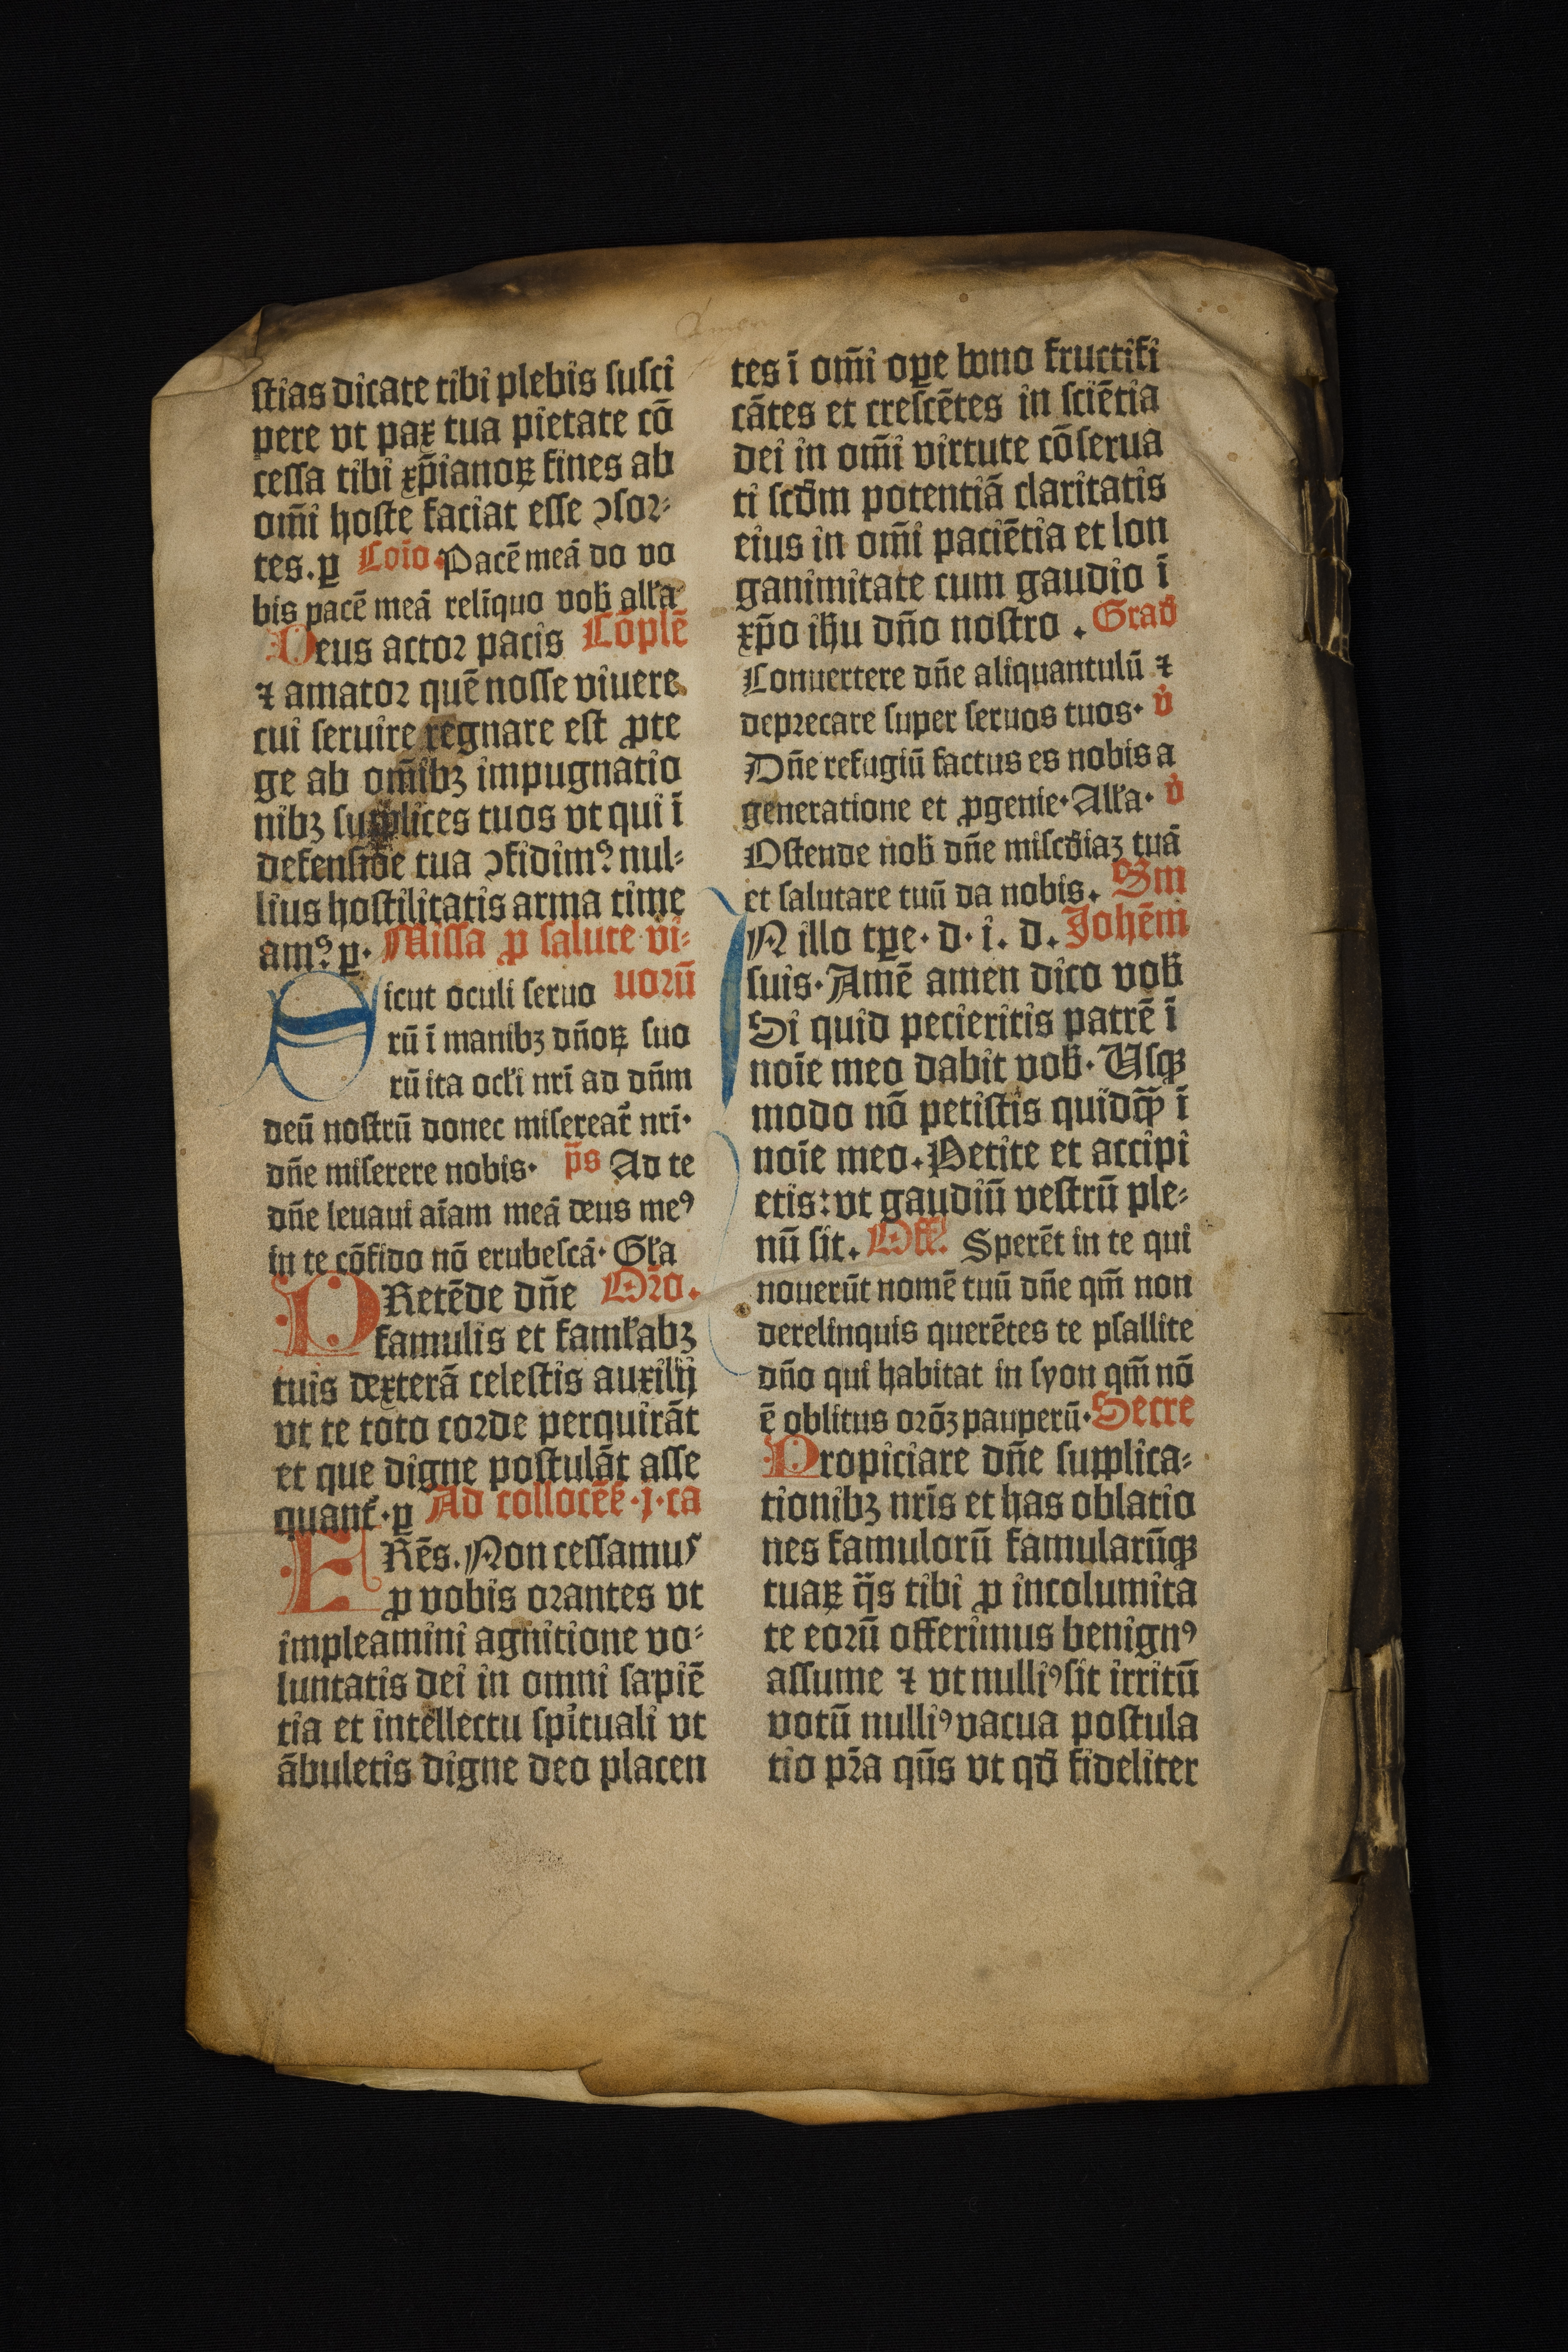 stias dicate tibi plebis susci
pere vt pax tua pietate cō
cessa tibi xp̄ianoꝝ fines ab
om̄i hoste faciat esse ↄsor⸗
tes. ꝑ Cōio. Pacē meā do vo
bis pacē meā relīquo vob̄ all'a
Deus actor pacis Cōplē
⁊ amator quē nosse viuere
cui seruire regnare est ꝓte
ge ab om̄ibꝫ impugnatio
nibꝫ supplices tuos vt qui ī
defensiōe tua ↄfidimꝰ nul⸗
lius hostilitatis arma time
amꝰ. ꝑ. Missa ꝓ salute vi⸗
uorū
Sicut oculi seruo
rū ī manibꝫ dn̄oꝝ suo
rū ita ocl'i nr̄i ad dn̄m
deū nostrū donec misereat᷑ nr̄i.
dn̄e miserere nobis. ps̄ Ad te
dn̄e leuaui aīam meā deus meꝰ
in te cōfido nō erubescā. Gl'a
PRetēde dn̄e Oro.
famulis et faml'abꝫ
tuis dexterā celestis auxilij
vt te toto corde perquirāt
et que digne postulāt asse
quant᷑. ꝑ Ad collocēs̄. j. ca
FRēs. Non cessamus
ꝓ vobis orantes vt
impleamini agnitione vo⸗
luntatis dei in omni sapiē
tia et intellectu spi̇tuali vt
ābuletis digne deo placen
tes ī om̄i oꝑe bono fructifi
cātes et crescētes in sciētia
dei in om̄i virtute cōforta
ti scd̄m potentiā claritatis
eius in om̄i paciētia et lon
ganimitate cum gaudio ī
xp̄o ih̄u dn̄o nostro. Grad̄
Conuertere dn̄e aliquantulū ⁊
deprecare super seruos tuos. v̇
Dn̄e refugiū factus es nobis a
generatione et ꝓgenie. All'a. v̇
Ostende nob̄ dn̄e miscd̄iaꝫ tuā
et salutare tuū da nobis. Sm
IN illo tꝑe. d. i. d. Johēm
suis. Amē amen dico vob̄
Si quid petieritis patrē ī
noīe meo dabit vob̄. Usqꝫ
modo nō petistis quidqꝫ̄ ī
noīe meo. Petite et accipi
etis: vt gaudiū vestrū ple⸗
nū sit. Off̄. Sperēt in te qui
nouerūt nomē tuū dn̄e qm̄ non
derelinquis querētes te psallite
dn̄o qui habitat in syon qm̄ nō
ē oblitus orōꝫ pauperū. Secre
Propiciare dn̄e supplica⸗
tionibꝫ nr̄is et has oblatio
nes famulorū famularūqꝫ
tuaꝝ q̄s tibi ꝓ incolumita
te eorū offerimus benignꝰ
assume ⁊ vt nulliꝰ sit irritū
votū nulliꝰ vacua postula
tio pr̄a qūs vt qd̄ fideliter